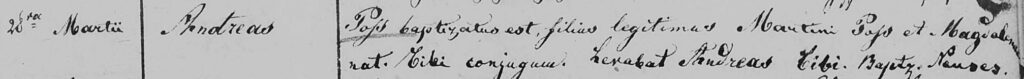 28va Martii Andreas Poss baptizatus est, filius legitimus Martini Poss et Magdalena
nat. Tibi conjugum. Levabat Andreas Tibi. Baptz. Neuses.